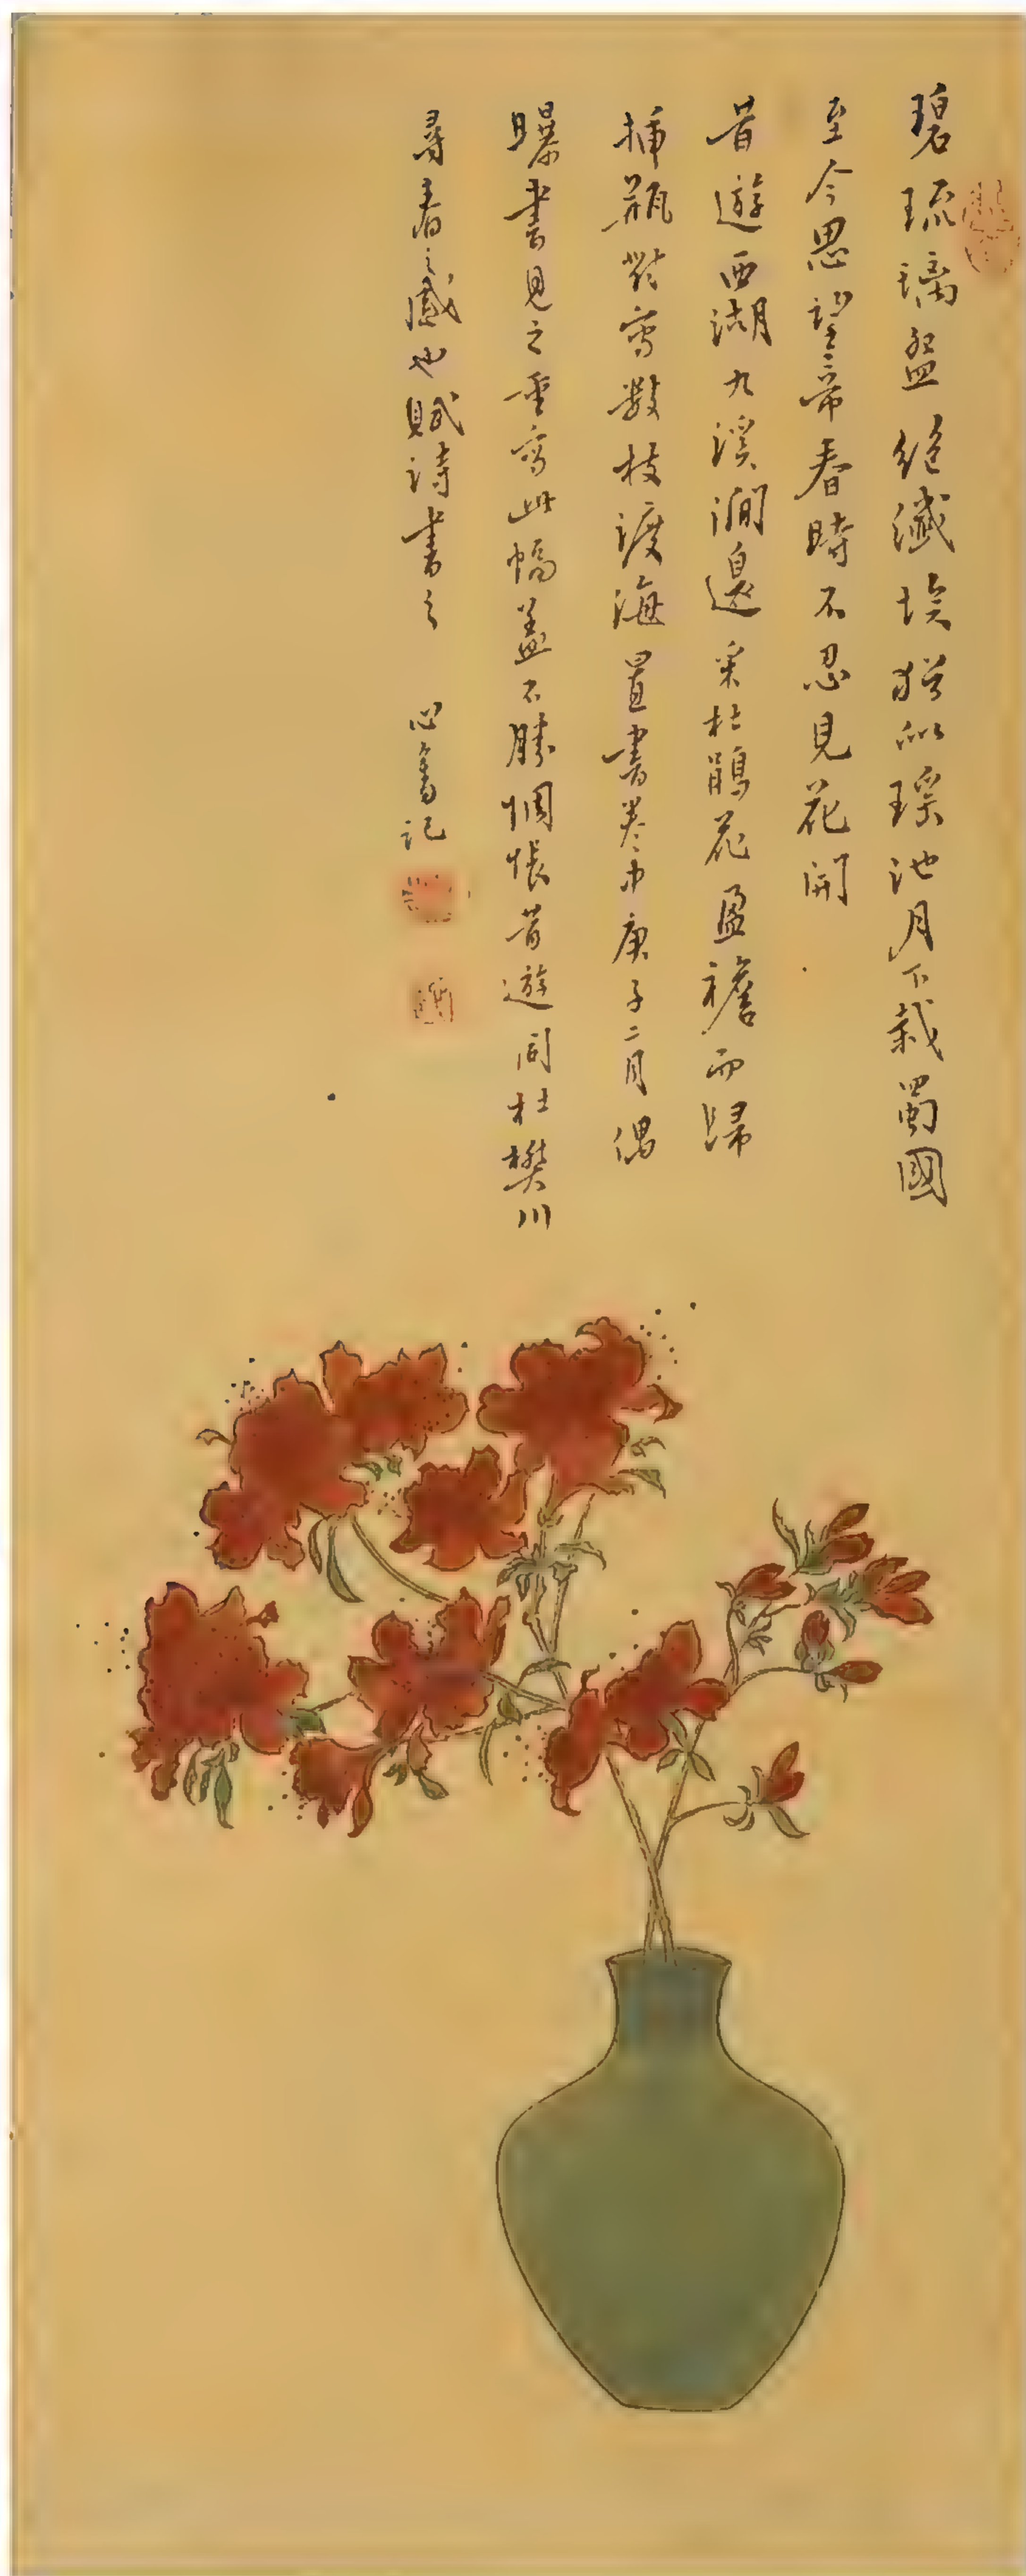 碧琉璃盌絕纖埃猶似瑤池月下栽蜀國
至今思望帝春時不忍見花開
昔遊西湖九溪澗邊采杜鵑花盈襜而歸
插瓶對寫數枝渡海置書卷中庚子二月偶
曝書見之重寫此幅蓋不勝惆悵昔遊同杜樊川
尋春之感也賦詩書之 心畬記